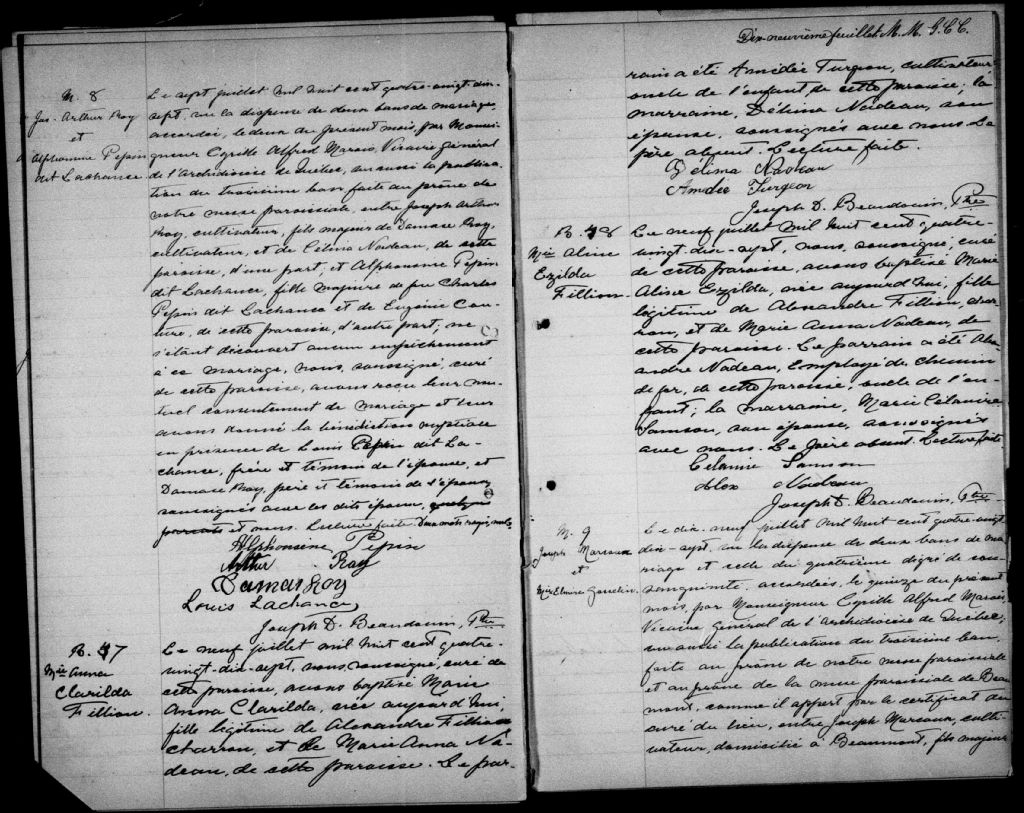 M. 8
Jos. Arthur Roy
et
Alphonsine Pepin
dit Lachance
Le sept juillet mil huit cent quatre-vingt-dix-
sept, vu la dispense de deux bans de mariage,
accordée, le deux du présent mois, par Monsei-
gneur Cyrille Alfred Marois, Vicaire Général
de l'Archidiocèse de Québec, vu aussi la publica-
tion du troisième ban faite au prône de
notre messe paroissiale, entre Joseph Arthur
Roy, cultivateur, fils majeur de Damase Roy,
cultivateur, et de Célina Nadeau, de cette
paroisse, d'une part, et Alphonsine Pepin
dit Lachance, fille majeure de feu Charles
Pepin dit Lachance et de Eugénie Cou-
ture, de cette paroisse, d'autre part; ne
s'étant découvert aucun empêchement
à ce mariage, nous, soussigné, curé
de cette paroisse, avons reçu leur mu-
tuel consentement de mariage et leur
avons donné la bénédiction nuptiale
en présence de Louis Pepin dit La-
chance, frère et témoin de l'épouse, et
Damase Roy, père et témoin de l'époux,
soussignés avec les dits époux, quelques
parents et nous. Lecture faite. Deux mots rayés, nuls.
Alphonsine Pepin
Arthur Roy
Damas Roy
Louis Lachance
Joseph D. Beaudouin, Ptre
B. 47
Mie Anna
Clarilda
Fillion.
Le neuf juillet mil huit cent quatre-
vingt-dix-sept, nous, soussigné, curé de
cette paroisse, avons baptisé Marie
Anna Clarilda, née aujourd'hui,
fille légitime de Alexandre Fillion
charron, et de Marie Anna Na-
deau, de cette paroisse. Le par-
Dix-neuvième feuillet. M. M. G. C. C.
rain a été Amédée Turgeon, cultivateur
oncle de l'enfant, de cette paroisse; la
marraine, Délima Nadeau, son
épouse, soussignés avec nous. Le
père absent. Lecture faite.
Délima Nadeau
Amédée Turgeon
Joseph D. Beaudouin, Ptre
B. 48
Mie Alice
Ezilda
Fillion
Le neuf juillet mil huit cent quatre-
vingt-dix-sept, nous, soussigné, curé
de cette paroisse, avons baptisé Marie
Alice Ezilda, née aujourd'hui, fille
légitime de Alexandre Fillion, char-
ron, et de Marie Anna Nadeau, de
cette paroisse. Le parrain a été Alex-
andre Nadeau, employé de chemin
de fer, de cette paroisse, oncle de l'en-
fant; la marraine, Marie Célanire
Samson, son épouse, soussignés
avec nous. Le père absent. Lecture faite
Celanire Samson
Alex Nadeau
Joseph D. Beaudouin, Ptre
M. 9
Joseph Marcoux
et
Mie Elmina Gosselin.
Le dix-neuf juillet mil huit cent quatre-vingt
dix-sept, vu la dispense de deux bans de ma-
riage et celle du quatrième degré de con-
sanguinité, accordées, le quinze du présent
mois, par Monseigneur Cyrille Alfred Marois,
Vicaire général de l'archidiocèse de Québec;
vu aussi la publication du troisième ban,
faite au prône de notre messe paroissiale
et au prône de la messe paroissiale de Beau
mont, comme il appert par le certificat du
curé du lieu, entre Joseph Marcoux, culti-
vateur, domicilié à Beaumont, fils majeur